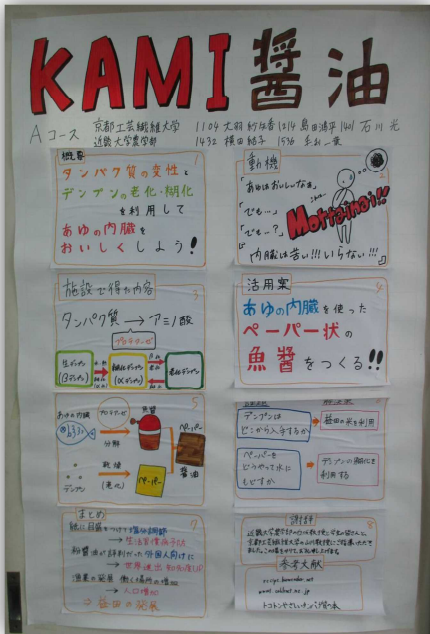 KAMI醤油
Aコース 京都工芸繊維大学 1104 大羽 1214 島田 1401 石川 光
近畿大学農学部 1432 横田 結子 1536
概要
1
タンパク質の変性と
デンプンの老化・糊化
を利用して
あゆの内臓を
おいしくしよう!
動機
2
「あゆはおいしいなぁ」
「でも…」
「でも…?」
Mottainai!!
「内臓は苦い!!!いらない!!!」
施設で得た内容
3
タンパク質→アミノ酸
プロテアーゼ
生デンプン
(βデンプン)
糊化デンプン
(αデンプン)
老化デンプン
活用案
4
あゆの内臓を使った
ペーパー状の
魚醤をつくる!!
5
あゆの内臓
プロテアーゼ
魚醤
分解
ペーパー
醤油
デンプン
乾燥
(老化)
ペーパー
デンプンは
どこから入手するか
益田の米を利用
ペーパーを
どうやって水に
もどすか
デンプンの糊化を
利用する
まとめ
7
塩分調節
→生活習慣病予防
粉醤油が評判だった外国人向けに
→世界進出 知名度UP
漁業の発展 働く場所の増加
→人口増加
⇒益田の発展
謝辞
8
参考文献
トコトンやさしいタンパク質の本